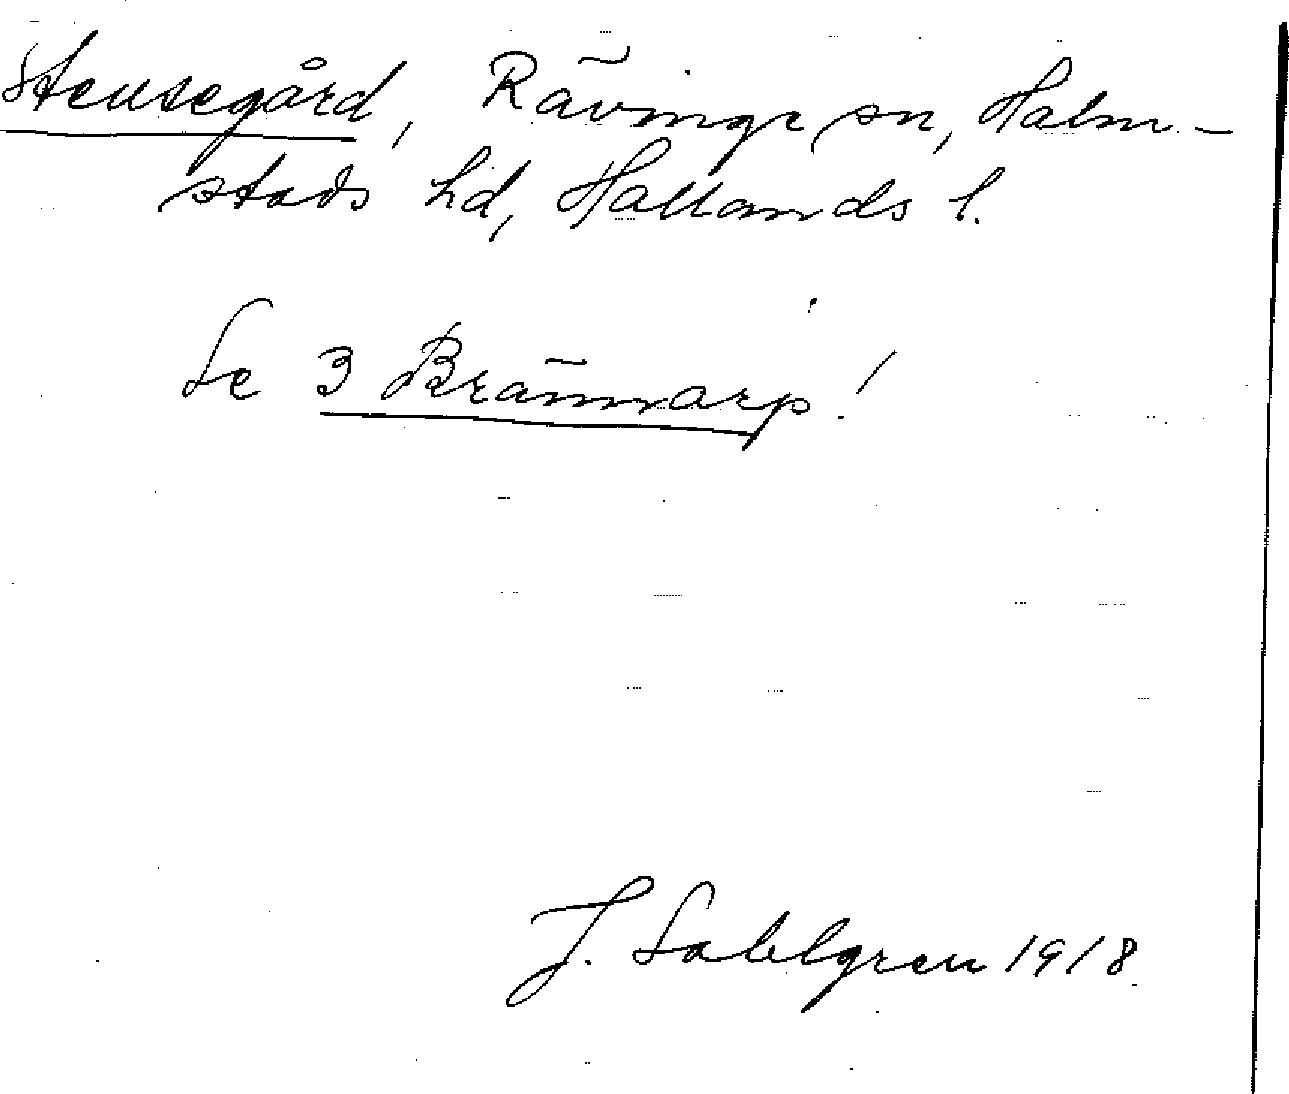 Stensegård, Rävinge sn, Halm-
stads hd, Hallands l.
Se 3 Brännarp!
J. Sahlgren 1918